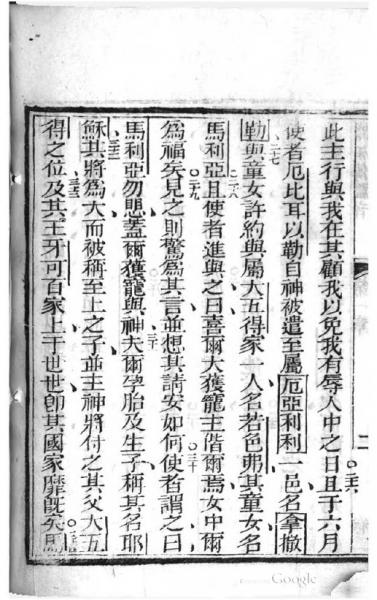 此主行與我在其顧我以免我有辱人中之日且于六月
使者厄比耳以勒自神被遣至屬厄亞利利一邑名拿撒
勒與童女許約與屬大五得家一人名若色弗其童女名
馬利亞且使者進與之曰喜爾大獲寵主偕爾焉女中爾
為福矣見之則驚為其言並想其請安如何使者謂之曰
馬利亞勿懼蓋爾獲寵與神夫爾孕胎及生子稱其名耶
穌其將為大而被稱至上之子並主神將付之其父大五
得之位及其王牙可百家上于世世即其國家靡既矣馬
二六
二七
二八
二九
三十
三一
三二
三三
Google